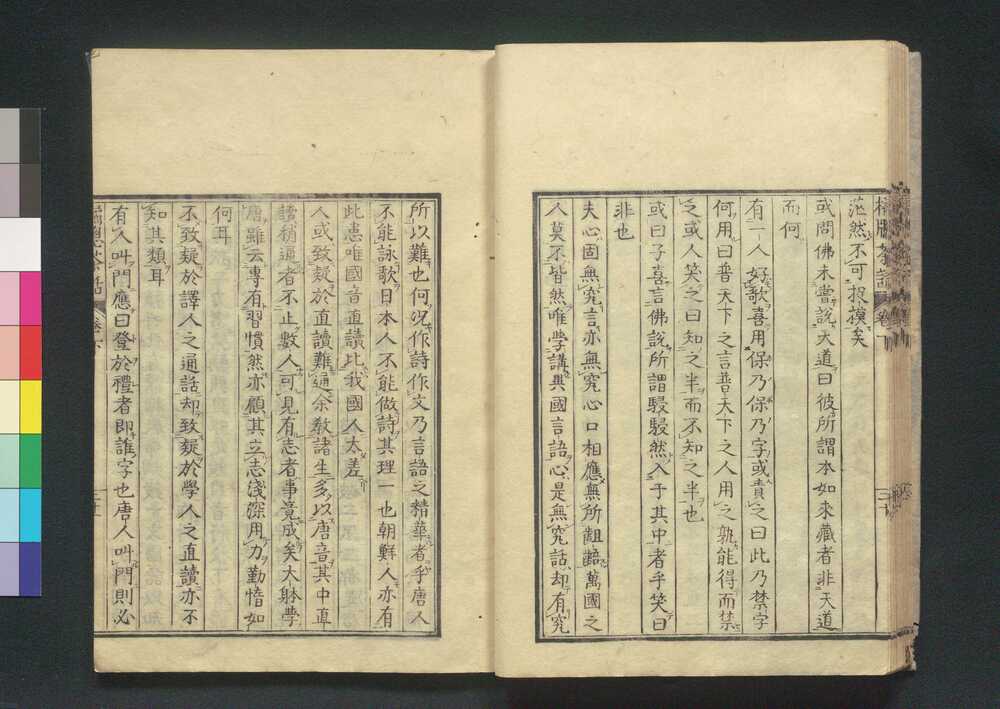 橘牕茶話 卷下
茫然不可捉摸矣
或問佛未嘗說天道曰彼所謂本如來藏者非天道
而何
有一人好歌喜用保乃保乃字或責之曰此乃禁字
何用曰普天下之言普天下之人用之孰能得而禁
之或人笑之曰知之半而不知之半也
或曰子喜言佛說所謂駸駸然入于其中者乎笑曰
非也
夫心固無究言亦無究心口相應無所齟齬萬國之
人莫不皆然唯學講異國言語心是無究話却有究
所以難也何况作詩作文乃言語之精華者乎唐人
不能詠歌日本人不能做詩其理一也朝鮮人亦有
此患唯國音直讀比我國人太差
人或致疑於直讀難通余教諸生多以唐音其中直
讀稍通者不止數人可見有志者事竟成矣大躰學
唐雖云專有習慣然亦顧其立志淺深用力勤惰如
何耳
不致疑於譯人之通話却致疑於學人之直讀亦不
知其類耳
有人叫門應曰登於禮者即誰字也唐人叫門則必
橘牕茶話 卷下